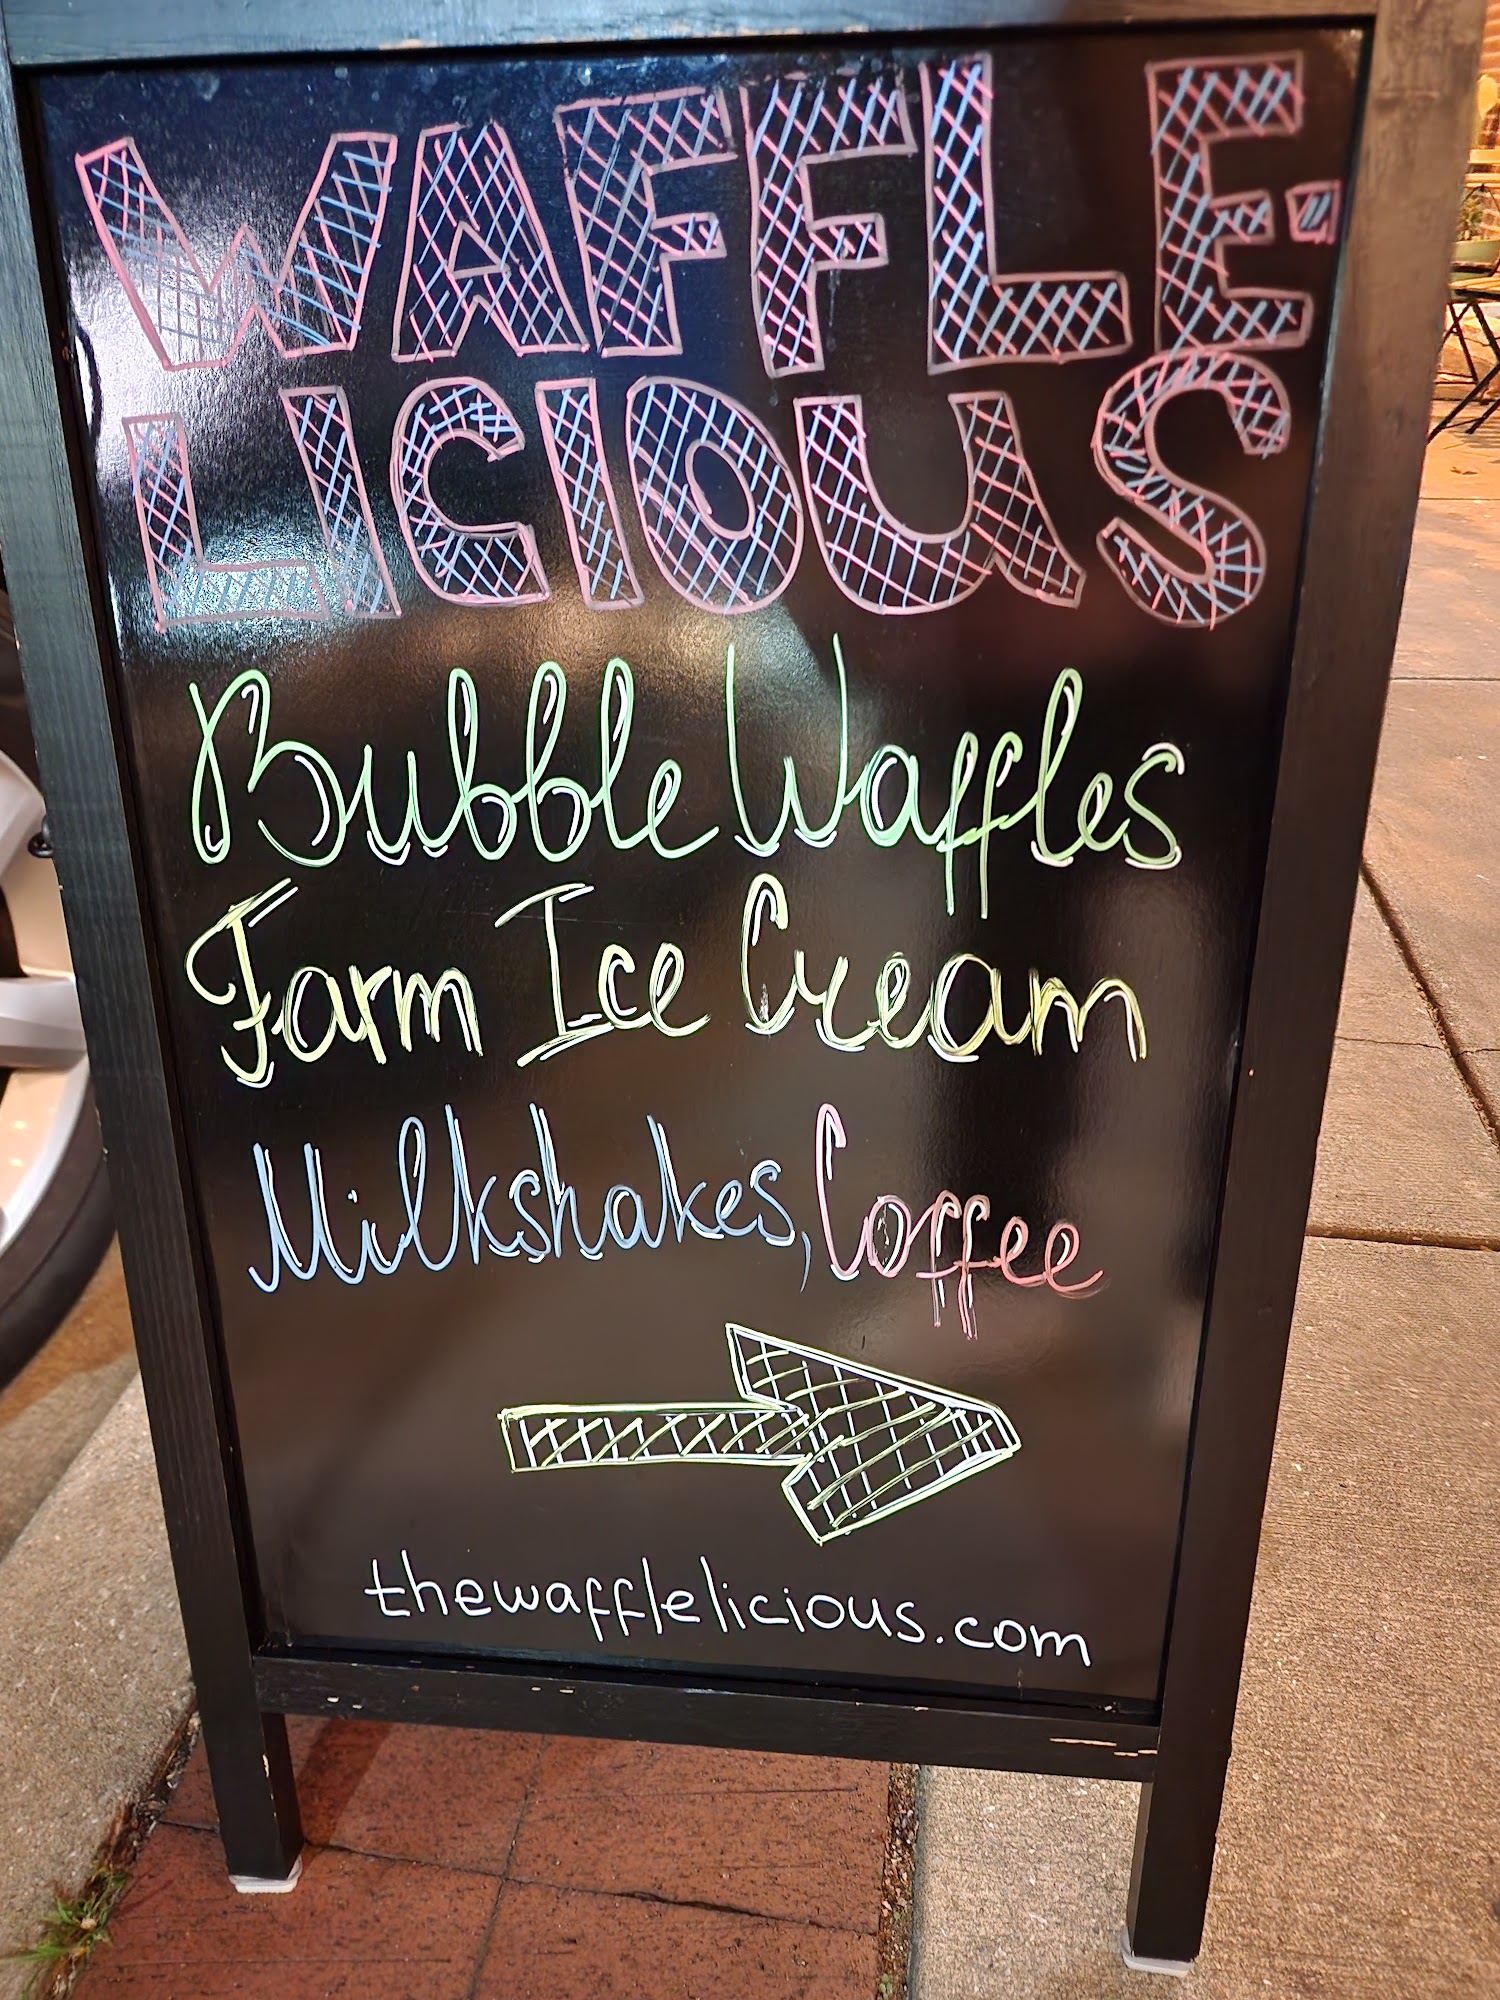 WAFFLE-
LICIOUS
Bubble Waffles
Farm Ice Cream
Milkshakes, Coffee
thewafflelicious.com